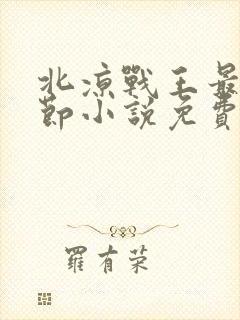 北凉戰王最
節小說免費
羅有荣